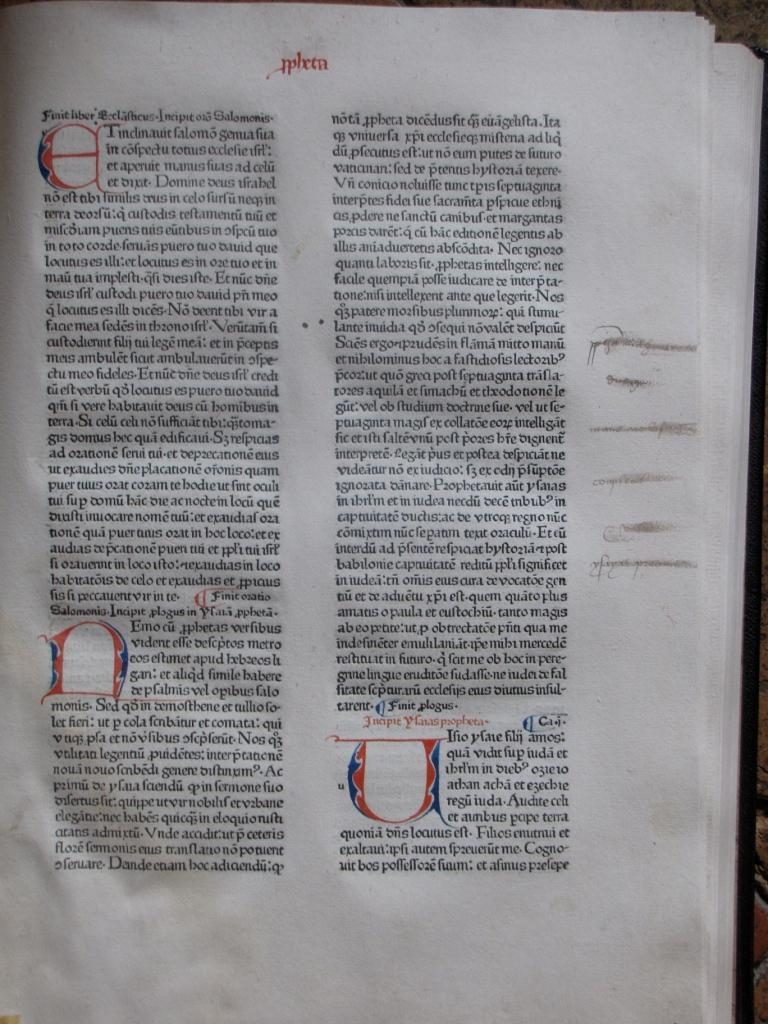 ꝓpheta
Finit liber Ecclāsticus. Incipit orō Salomonis.
ETinclinauit salomō genua sua
in cōspectu totius ecclesie isrl':
et aperuit manus suas ad celū
et dixit. Domine deus israhel
nō est tibi similis deus in celo sursū neqꝫ in
terra deorsū: q̇ custodis testamentū tuū et
mīscd̄iam pueris tuis eūtibus in ɔspcū tuo
in toto corde. seruās puero tuo dauid que
locutus es illi: et locutus es in ore tuo et in
maū tua implesti. q̄si dies iste. Et nūc dn̄e
deus isrl' custodi puero tuo dauid pr̄i meo
q̇ locutus es illi dicēs. Nō deerit tibi vir a
facie mea sedēs in throno isrl'. Verūtam̄ si
custodierint filij tui legē meā: et in p̄ceptis
meis ambulēt sicut ambulauerūt in ɔspe-
ctu meo fideles. Et nūc dn̄e deus isrl' credi
tū est verbū qd̄ locutus es puero tuo dauid
qm̄ si vere habitauit deus cū homibus in
terra. Si celū celi nō sufficiāt tibi: q̄ītoma-
gis domus hec quā edificaui. Sꝫ respicias
ad orationē serui tui et deprecationē eius
ut exaudies dn̄e placationē orōnis quam
puer tuus orat coram te hodie ut sint oculi
tui suꝑ domū hāc die ac nocte in locū quē
dixisti inuocare nomē tuū: et exaudias ora
tionē quā puer tuus orat in hoc loco: et ex
audias dep̄cationē pueri tui et ppl'i tui isrl'
si orauerint in loco isto: et exaudias in loco
habitatōis de celo et exaudias et ꝓpicius
sis si peccauerit vir in te. Finit oratio
Salomonis. Incipit ꝓlogus in Ysaiā ꝓphetā.
NEmo cū ꝓphetas versibus
viderit esse descrip̄tos metro
eos estimet apud hebreos li
gari: et aliqd̄ simile habere
de psalmis vel opibus salo
monis. Sed qd̄ in demosthene et tullio so-
let fieri: ut p cola scribātur et comata: qui
vtiqꝫ ꝓsa et nō v̄sibus ɔscp̄serūt. Nos qꝫ
vtilitati legentiū ꝓuidētes: interp̄tationē
nouā nouo scribēdi genere distinximꝰ. Ac
primū de ysaia sciendū ꝙ in sermone suo
disertus sit: quippe ut vir nobilis et vrbane
elegātie: nec habēs quicqꝫ in eloquio rusti
citatis admixtū. Vnde accidit: ut p̄ ceteris
florē sermonis eius translatio nō potuerit
ɔseruare. Deinde etiam hoc adiciendū: ꝙ
nō tā ꝓpheta dicēdus sit qꝫ euāgelista. Ita
eqꝫ vniuersa xp̄i ecclesieqꝫ misteria ad liq̇
dū ꝓsecutus est: ut nō eum putes de futuro
vaticinari: sed de p̄teritis hystoriā texere.
Vn̄ conicio noluisse tunc tp̄is septuaginta
interp̄tes fidei sue sacramēta ꝑspicue ethni
cis ꝓdere ne sanctū canibus et margaritas
porcis darēt: q̄ cū hāc editionē legeritis ab
illis aīaduertetis abscōdita. Nec ignoro
quanti laboris sit ꝓphetas intelligere: nec
facile quempiā posse iudicare de interp̄ta-
tione: nisi intellexerit ante que legerit. Nos
qꝫ patere morsibus plurimorꝝ: qui stimu-
lante inuidia qd̄ ɔsequi nō valēt despiciūt
Sciēs ergo ⁊ prudēs in flāmā mitto manū
et nihilominus hoc a fastidiosis lectoribꝰ
p̄cor: ut quō greci post septuaginta trāsla-
tores aquilā et simachū et theodotionē le
gūt: vel ob studium doctrine sue. vel ut se-
ptuaginta magis ex collatōe eorꝝ intelligāt
sic et isti saltē vnū post p̄ores hr̄e dignent̄
interp̄tē. Legāt p̄us et postea despiciāt: ne
videātur nō ex iudicio: sꝫ ex odij p̄sūptōe
ignorata dānare. Prophetauit aūt ysaias
in ihrl'm et in iudea necdū decē tribubꝰ in
captiuitatē ductis: ac de vtroqꝫ regno nūc
cōmixtim nūc sepatim texit oraculū. Et cū
interdū ad p̄sentē respiciat hystoriā ⁊ post
babilonie captiuitatē reditū ppl'i significet
in iudeā: tn̄ omīs eius cura de vocatōe gen
tiū et de aduētu xp̄i est. quem quāto plus
amatis o paula et eustochiū. tanto magis
ab eo petite: ut ꝓ obtrectatōe p̄nti qua me
indesinēter emuli laniāt ipe mihi mercedē
restituat in futuro. q̇ scit me ob hoc in pere-
grine lingue eruditōe sudasse. ne iudei de fal
sitate scp̄turarū ecclesijs eius diutius insul-
tarent. Finit ꝓlogus.
Incipit Ysaias propheta. Ca.j.
u
VIsio ysaie filij amos:
quā vidit suꝑ iudā et
ihrl'm in diebꝰ ozie io
athan achā et ezechie
regū iuda. Audite celi
et auribus pcipe terra
quoniā dn̄s locutus est. Filios enutriui et
exaltaui: ipsi autem spreuerūt me. Cogno-
uit bos possessorē suum: et asinus presepe